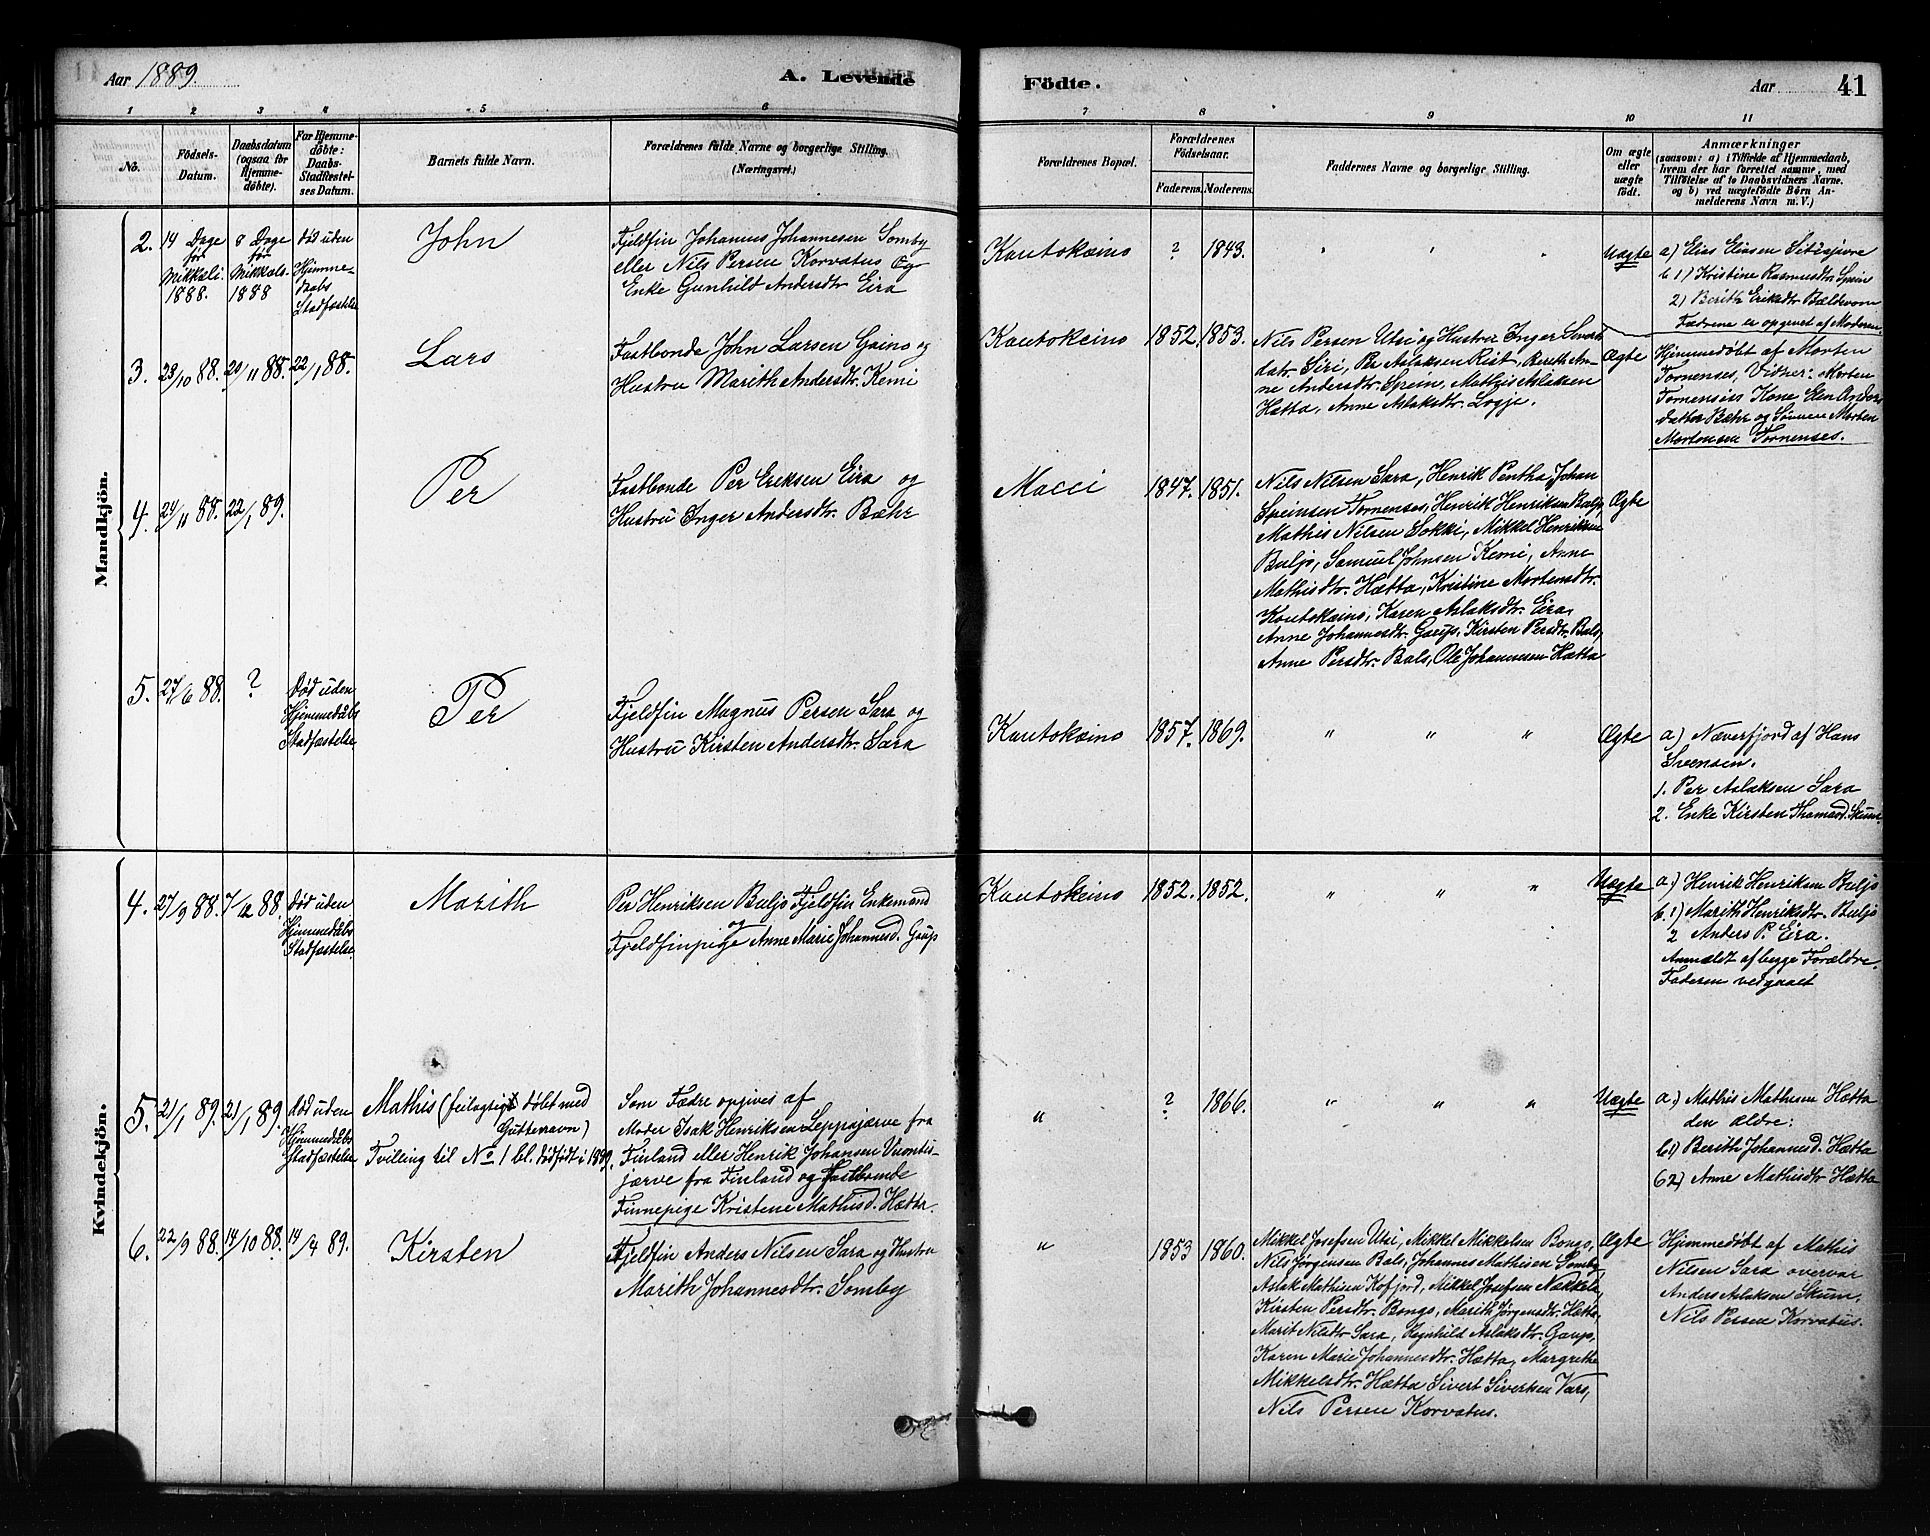 Aar 1889.
A. Levende
Födte.
Aar
41
1
2
3
4
5
6
7
8
9
10
11
No.
Födsels-
Datum.
Daabsdatum
(ogsaa for
Hjemme-
döbte).
For Hjemme-
döbte:
Daabs-
Stadfæstel-
ses Datum.
Barnets fulde Navn.
Forældrenes fulde Navne og borgerlige Stilling.
(Næringsvei.)
Forældrenes Bopæl.
Forældrenes
Födselsaar.
Faderens.
Moderens.
Faddernes Navne og borgerlige Stilling.
Om ægte
eller
uægte
födt.
Anmærkninger
(saasom: a) i Tilfælde af Hjemmedaab,
hvem der har forrettet samme, med
Tilföielse af to Daabsvidners Navne.
og b) ved uægtefödte Börn An-
melderens Navn m. V.)
Mandkjön.
2.
14 Dage
før
Mikkeli
1888.
8 Dage
før
Mikkels-
1888
Død uden
Hjemme-
daabs
Stadfæstelse
John
Fjeldfin Johannes Johannesen Somby
eller Nils Persen Korvatus og
Enke Gunhild Andersdtr Eira
Kautokeino
?
1843.
" " "
Uægte
a) Elias Eliasen
b 1) Kristine Rasmusdtr Spein
2) Berith Eriksdtr
Fædrene er opgevet af Moderen.
3.
28/10 88.
20/11 88.
22/1 88.
Lars
Fastbonde John Larsen Gaino og
Hustru Marith Andersdtr. Kemi
Kautokeino
1852.
1853.
Nils Persen Utsi og Hustru Inger
datr. Siri, Per Aslaksen Rist, Bereth An-
ne Andersdtr. Spein, Mathis Aslaksen
Hætta, Anne Aslaksdtr. Logje.
Ægte
Hjemmedøbt af Morten
Tornenses, Vidner: Morten
Tornensis Kone Elen Anders
datter Bæhr og Sønnen Morten
Mortensen Tornenses.
4.
24/11 88.
22/1 89.
Per
Fastbonde Per Eriksen Eira og
Hustru Inger Andersdtr. Bæhr
Macci
1847.
1851.
Nils Nilsen Sara, Henrik Pentha, Johan
Speinsen Tornenses, Henrik Henriksen Buljo,
Mathis Nilsen Sokki, Mikkel Henriksen
Buljo, Samuel Johnsen Kemi, Anne
Mathisdtr. Hætta, Kristine Mortensdtr.
Kautokeino, Karen Aslaksdtr. Eira,
Anne Johannesdtr. Gaup, Kirsten Persdtr. Bals,
Anne Persdtr. Bals, Ole Johannesen Hætta
Ægte
5.
27/6 88.
?
Død uden
Hjemmedaabs
Stadfæstelse
Per
Fjeldfin Magnus Persen Sara og
Hustru Kirsten Andersdtr. Sara
Kautokeino
1857.
1869.
" " "
Ægte
a) Næverfjord af Hans
Svensen.
1. Per Aslaksen Sara
2. Enke Kirsten Thomasd. Skum.
Kvindekjön.
4.
27/9 88.
7/12 88.
Død uden
Hjemmedabs
Stadfæstelse
Marith
Per Henriksen Buljo Fjeldfin Enkemand
og
Fjeldfinpige Anne Marie Johannesd. Gaup
Kautokeino
1852.
1852.
" " "
Uægte
a.) Henrik Henriksen Buljo
b. 1) Marith Henriksdtr. Buljo
2 Anders P. Eira.
Anmeldt af begge Forældre.
Faderen vedgaaet
5.
21/1 89.
21/1 89.
Død uden
Hjemmedabs
Stadfæstelse
Mathis (feilagtigt døbt med
Guttenavn)
Tvilling til No 1 bl. dødfødt i 1889.
Som Fædre opgives af
Moder Isak Henriksen Leppajærve fra
Finland eller Henrik Johansen Vuontis-
jærve fra Finland og Fastboende
Finnepige Kristene Mathisd. Hætta.
"
?
1866.
" " "
Uægte
a.) Mathis Mathisen Hætta
den ældre:
b 1) Berith Johannesd. Hætta
b 2) Anne Mathisdtr Hætta
6.
22/9 88.
14/10 88.
14/4 89.
Kirsten
Fjeldfin Anders Nilsen Sara og Hustru
Marith Johannesdtr. Somby
"
1853
1860.
Mikkel Josefsen Utsi, Mikkel Mikkelsen Bongo,
Nils Jørgensen Bals, Johannes Mathisen Somby,
Aslak Mathisen Kofjord, Mikkel Josefsen Nækkela,
Kirsten Persdtr. Bongo, Marith Jørgensdtr. Hætta,
Marit Nilsdtr Sara, Regnhild Aslaksdtr. Gaup,
Karen Marie Johannesdtr. Hætta, Margrethe
Mikkelsdtr. Hætta Sivert Sivertsen Vars,
Nils Persen Korvatus.
Ægte
Hjemmedøbt af Mathis
Nilsen Sara overvær
Anders Aslaksen Skum.
Nils Persen Korvatus.